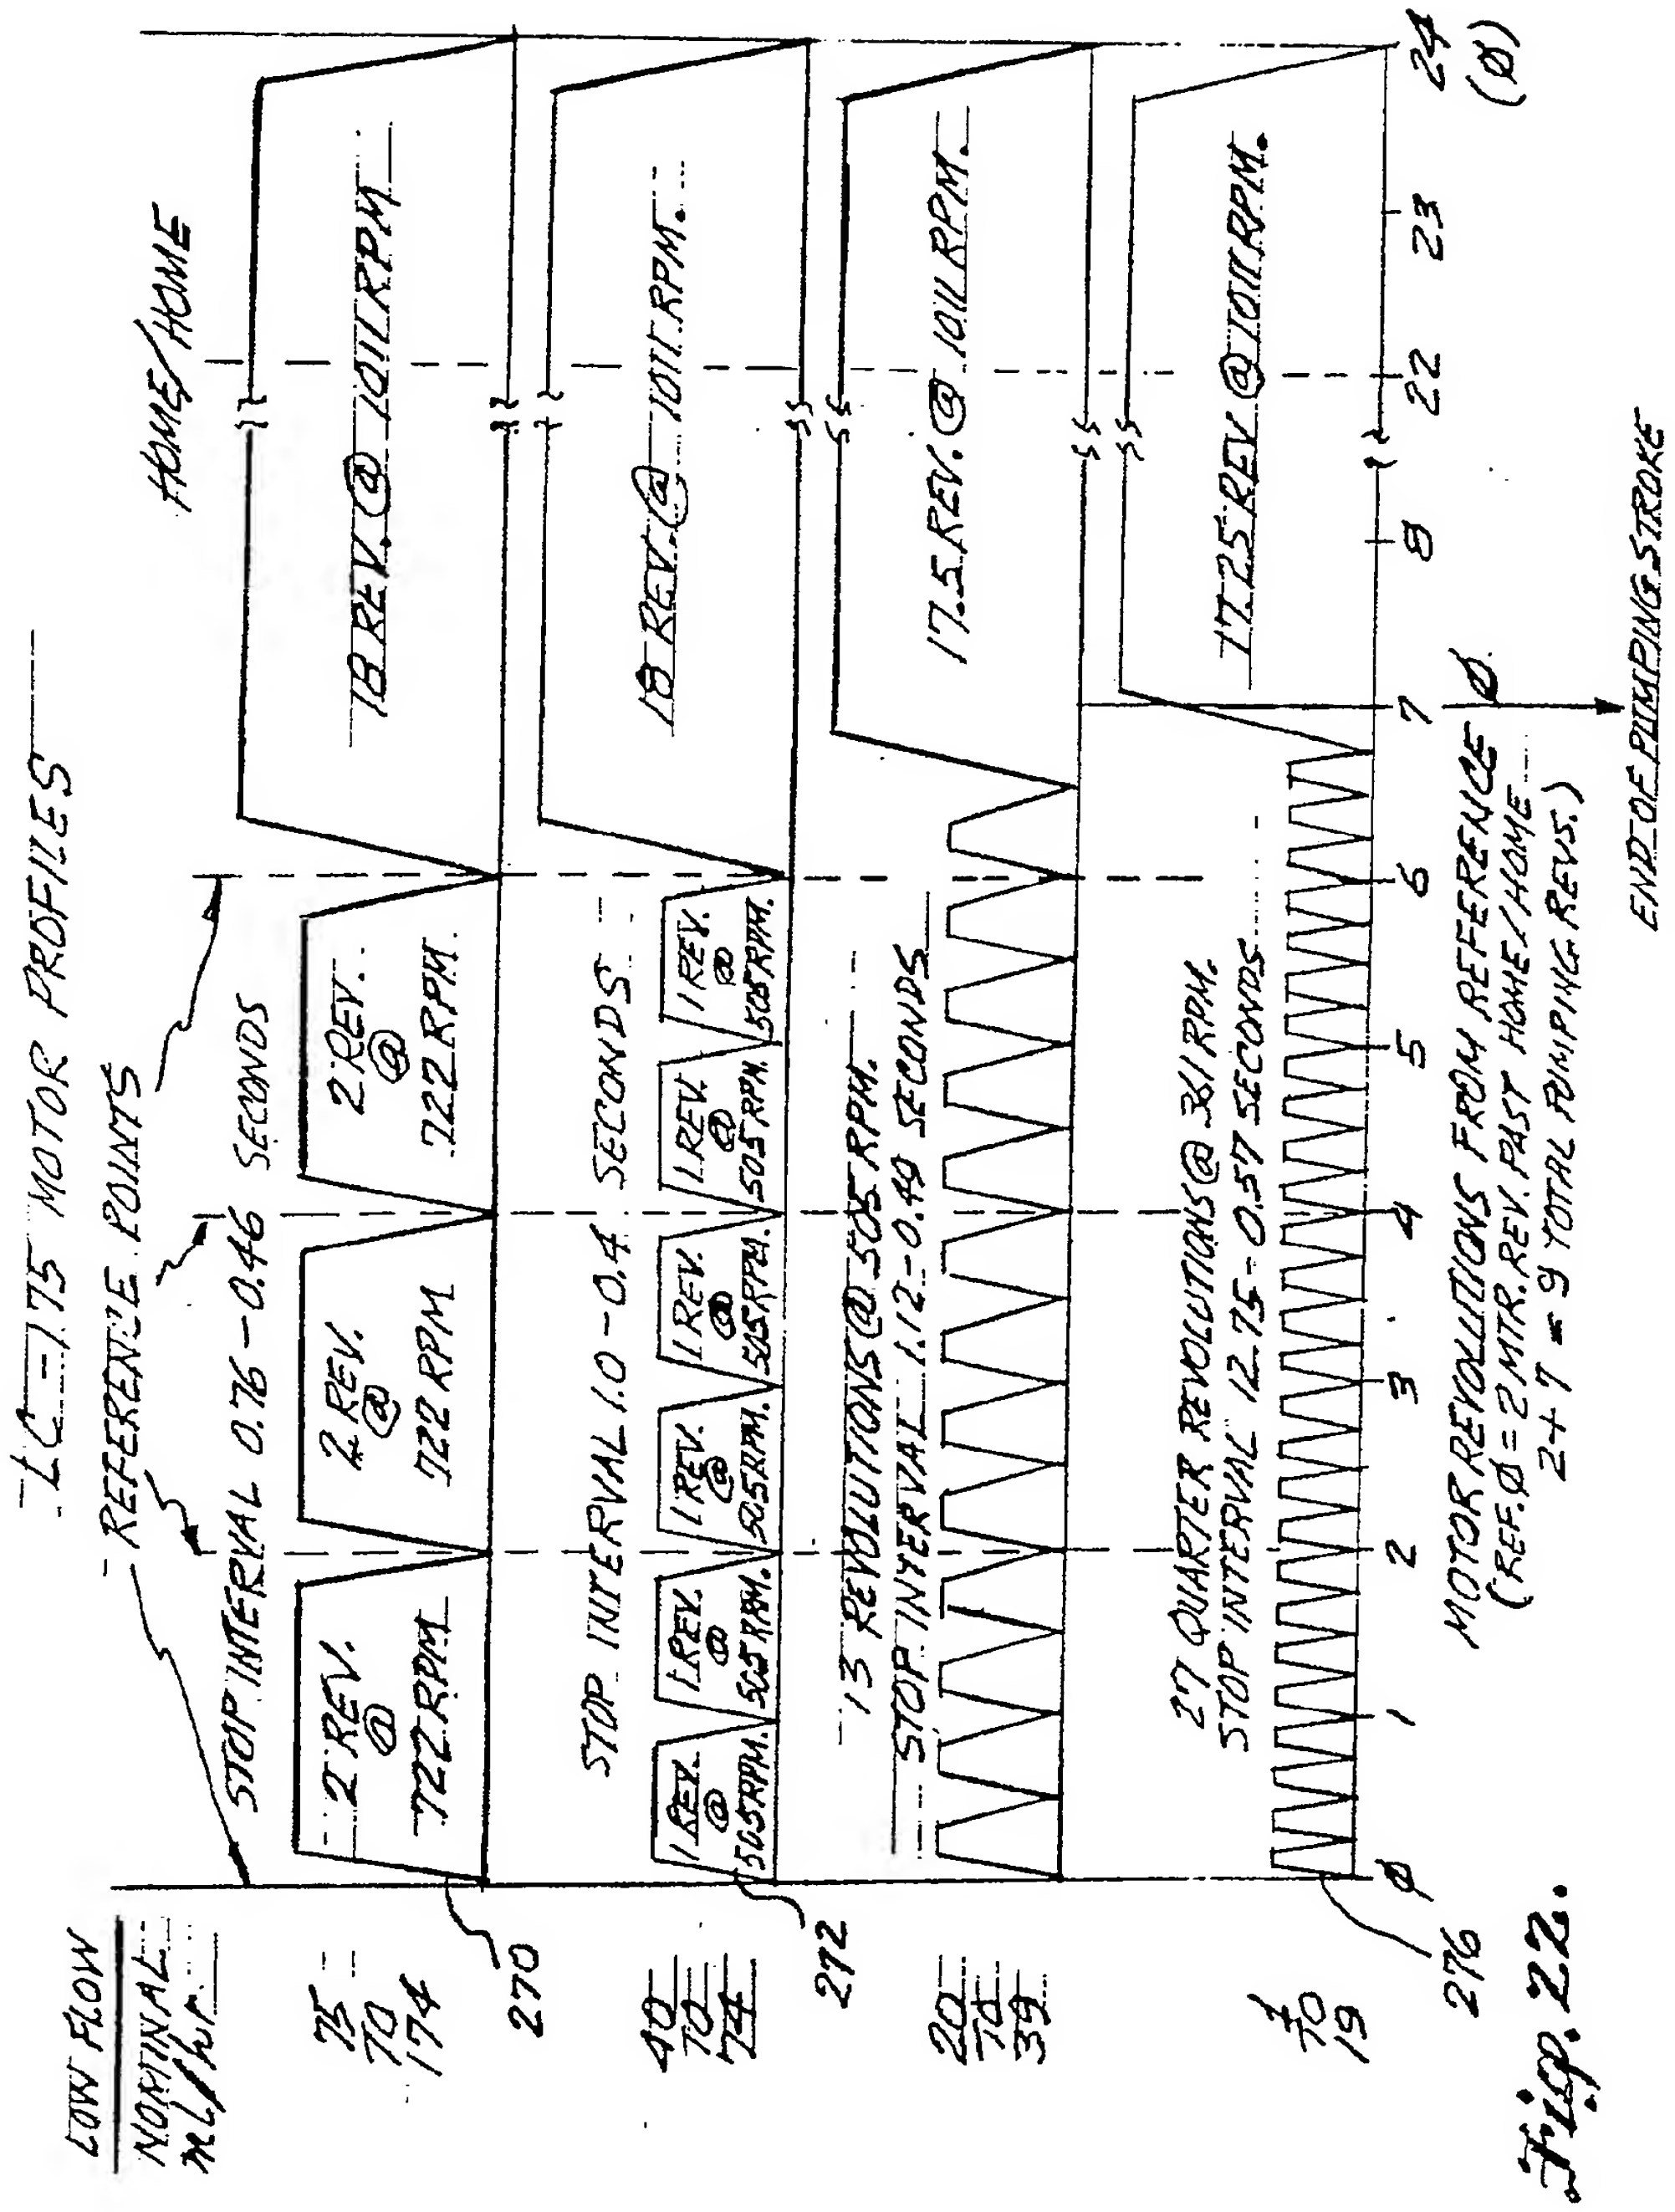 LC-175 MOTOR PROFILES
REFERENCE POINTS
HOME/HOME
LOW FLOW
NOMINAL
ml/hr.
STOP INTERVAL 0.76-0.46 SECONDS
75
TO
174
2 REV.
@
722 RPM
2 REV.
@
722 RPM
2 REV.
@
722 RPM.
18 REV. @ 1011 RPM
270
STOP INTERVAL 1.0-0.4 SECONDS
40
TO
74
1 REV.
@
505 RPM.
1 REV.
@
505 RPM.
1 REV.
@
505 RPM.
1 REV.
@
505 RPM.
1 REV.
@
505 RPM.
1 REV.
@
505 RPM.
18 REV. @ 1011 RPM.
272
20
TO
39
13 REVOLUTIONS @ 505 RPM.
STOP INTERVAL 1.12-0.49 SECONDS
17.5 REV. @ 1011 RPM.
1
TO
19
27 QUARTER REVOLUTIONS @ 361 RPM.
STOP INTERVAL 12.75-0.57 SECONDS
17.25 REV @ 1011 RPM.
276
Ø 1 2 3 4 5 6 7 8 22 23 24
(Ø)
MOTOR REVOLUTIONS FROM REFERENCE Ø
(REF. Ø = 2 MTR. REV. PAST HOME/HOME
2+7 = 9 TOTAL PUMPING REVS.)
END OF PUMPING STROKE
Fig. 22.